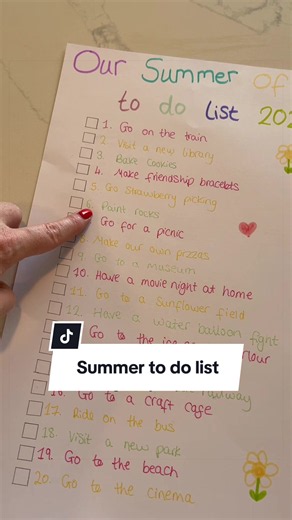 Our Summer Of
to do list 202
1. Go on the train
2. Visit a new library
3. Bake cookies
4. Make friendship bracelets
5. Go Strawberry picking
6. Paint rocks
Go for a picnic
8. Make our own pizzas
9. Go to a museum
10. Have a movie night at home
11. Go to a Sunflower field
12. Have a water balloon fight
Go to the ice our
Summer to do list
railway
16. Go to a craft cafe
17. Ride on the bus
18. Visit a new park
19. Go to the beach
20. Go to the cinema